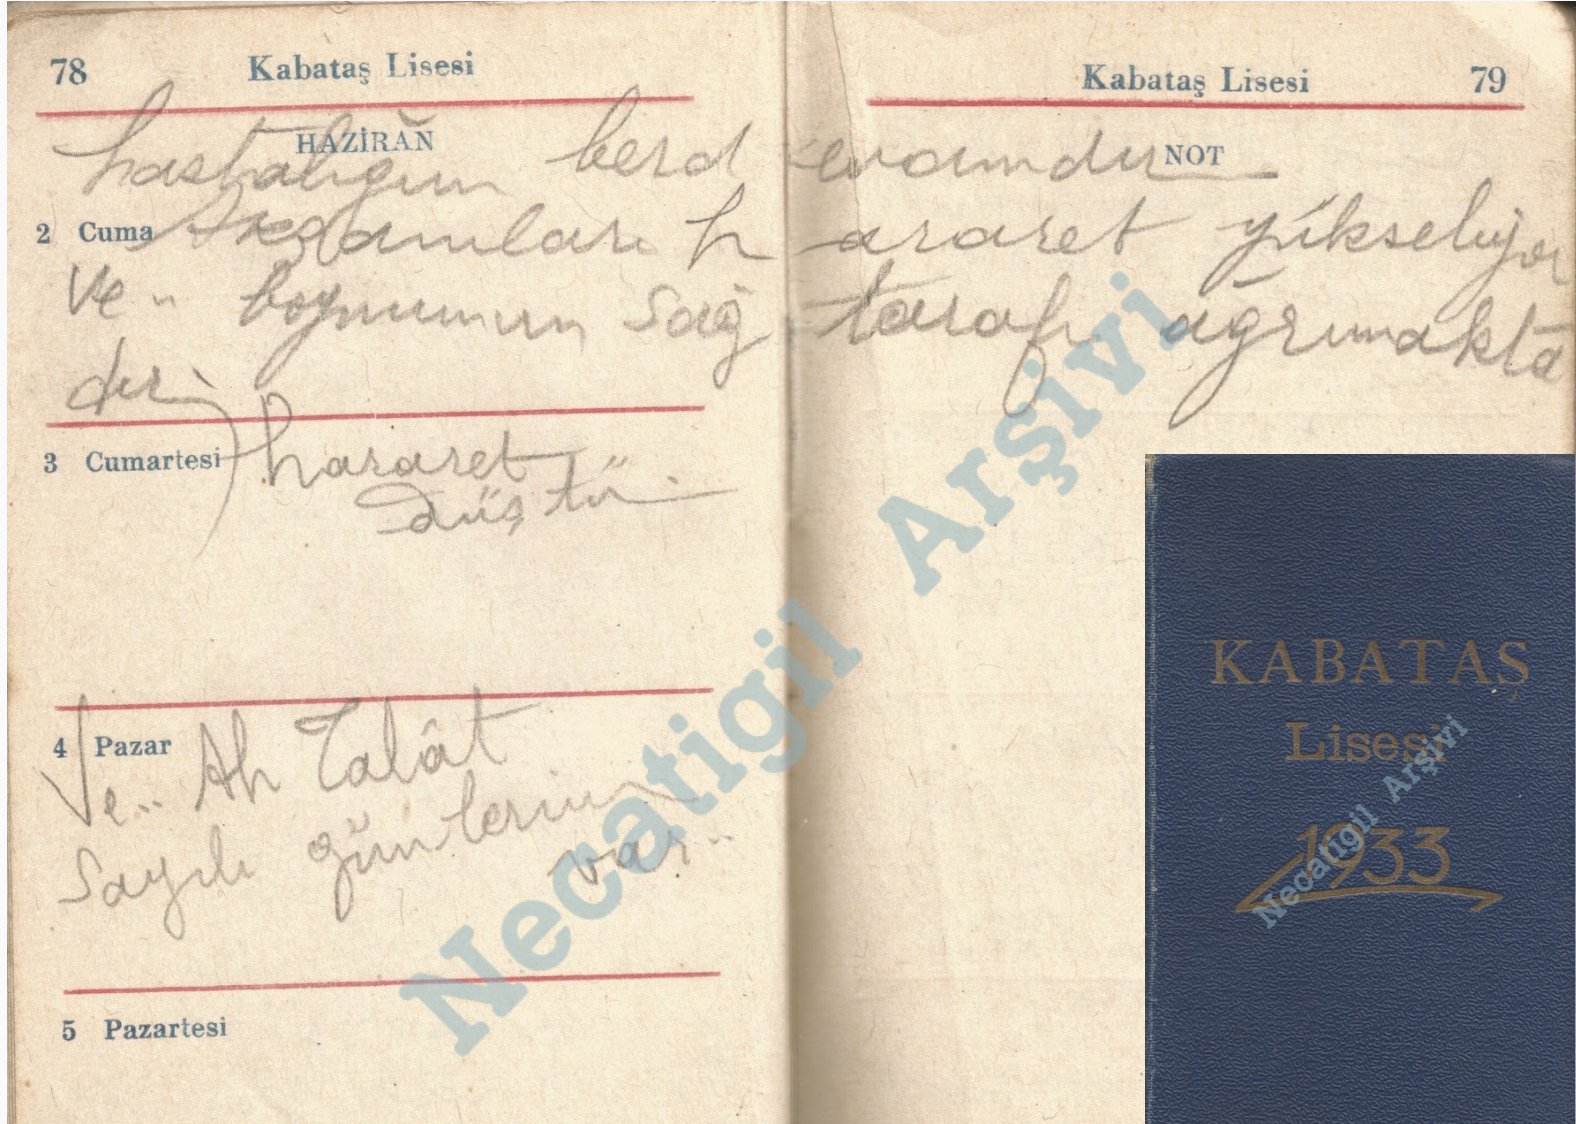 78 Kabataş Lisesi
Kabataş Lisesi 79
HAZİRAN
NOT
hastalığım berdevamdır
2 Cuma
Akşamları hararet yükseliyor
Ve.. boynumun sağ tarafı ağrımakta
dır
3 Cumartesi
hararet
düştü.
4 Pazar
Ve.. Ah Talât
Sayılı günlerin
var..
5 Pazartesi
Necatigil Arşivi
KABATAŞ
Lisesi
1933
Necatigil Arşivi